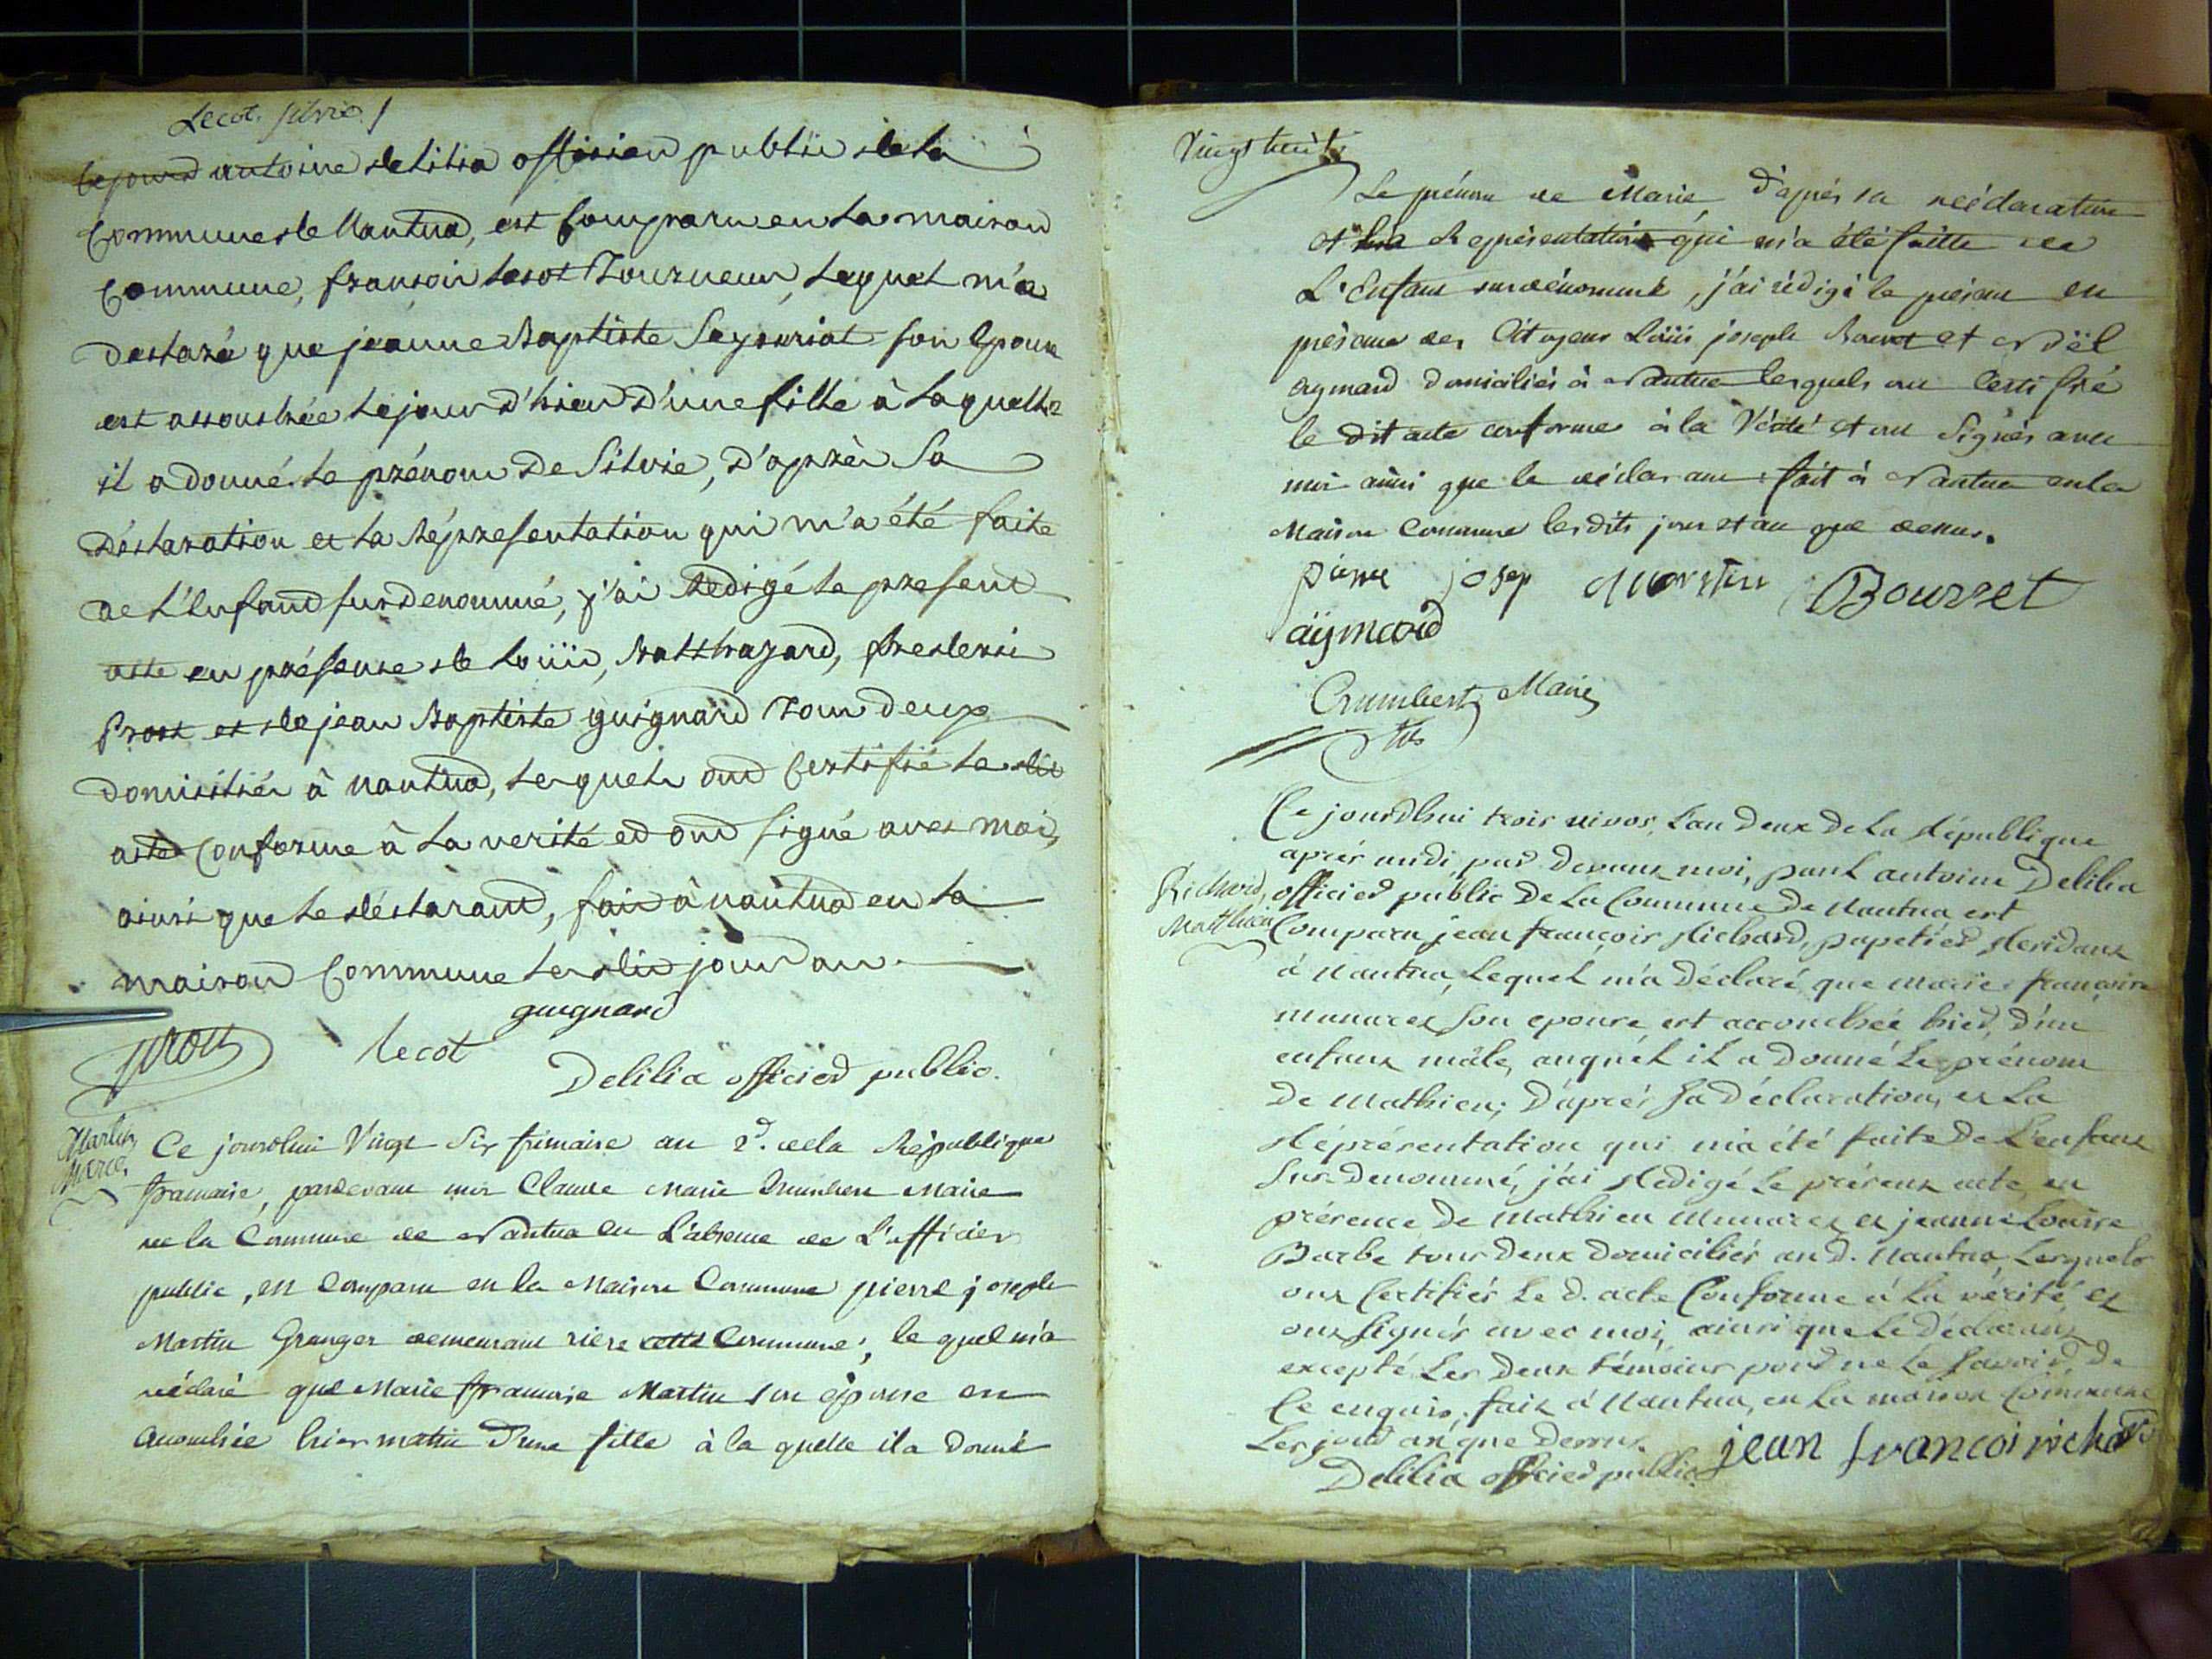 Lecot. silvie
antoine delilia officier public de la
Commune de Nantua, est Comparu en la maison
Commune, françois lecot Tourneur, lequel m'a
declaré que jeanne Baptiste Seyssuriat son Epouse
est accouchée le jour d'hier d'une fille à laquelle
il a donné le prénom de Silvie, d'après Sa
Déclaration et la réprésentation qui m'a été faite
de l'Enfand surdenommé, j'ai redigé le present
acte en présence de Loüis, Balthazard, frederic
Prost et de jean Baptiste guignard tous deux
domiciliés à nantua, lesquels ond Certifié le dit
acte Conforme à la verité ed ond signé avec moi,
ainsi que le déclarand, fait à nantua en la
maison Commune les dit jour an
guignard
prost lecot
Delilia officier public.
Martin, Marie,
Ce jourdhui Vingt Six frimaire an 2d. de la République
francaise, pardevant moi Claude Marie Crumbert Maire
de la Commune de Nantua en L'absence de L'officier
public, est comparu en la Maison Commune pierre joseph
Martin Granger demeurant riere cette Commune, le quel m'a
déclaré que Marie francoise Martin son épouse est
accouchée hier matin d'une fille à la quelle il a donné
Vingt huit
Le prénom de Marie d'aprés sa déclaration
et la Représentation qui m'a été faitte de
L'Enfant surdénommé, j'ai rédigé le présent en
présence des Citoyens Loüis joseph Bouvet et
aymard domiciliés à Nantua lesquels ont Certifié
le dit acte conforme à la Vérité et ont Signés avec
moi ainsi que le déclarant fait à Nantua en la
Maison Commune les dits jour et an que dessus.
pierre josep Martin Bouvet
aÿmard
Crumbert Maire
Ce jourdhui trois nivos, L'an Deux De La République
aprés midi, par Devant moi, paul antoine Delilia
Richard, officier public De La Commune De Nantua est
Mathieu Comparu jean françois Richard, papetier Residant
à Nantua, Lequel m'a Déclaré que marie françoise
munarez son epouse est accouchée hier, D'un
enfant mâle, auquel il a Donné Le prénom
De Mathieu; D'aprés sa Déclaration, et La
Réprésentation qui m'a été faite De L'enfant
Sus Denommé, j'ai Redigé Le présent acte, en
présence De Mathieu Munarez et jeanne Louise
Barbe tous Deux Domiciliés au d. Nantua, Lesquels
ont Certifiés Le d. acte Conforme à La vérité et
ont Signés avec moi, ainsi que Le Déclarant
excepté Les Deux témoins pour ne Le savoir, De
Ce enquis; fait à Nantua, en La maison Commune
Les jour an que Dessus.
Delilia officier public jean francoi richard